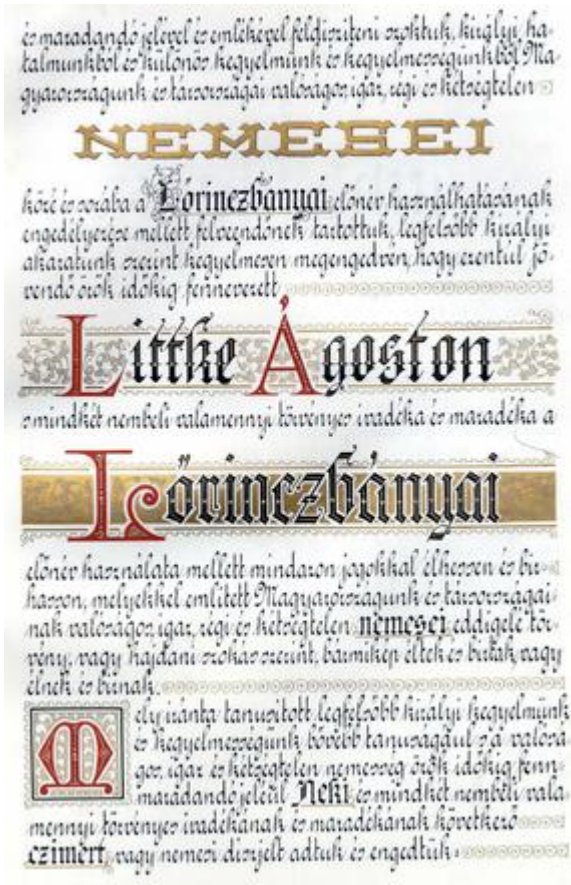 és maradandó jelével és emlékével feldísziteni szoktuk, királyi ha-
talmunkból és különös kegyelmünk és kegyelmességünkből Ma-
gyarországunk és társországai valóságos, igaz, régi és kétségtelen
NEMESEI
közé és sorába a Lőrinczbányai előnév használhatásának
engedélyezése mellett felveendőnek tartottuk, legfelsőbb királyi
akaratunk szerint kegyelmesen megengedvén, hogy ezentúl jö-
vendő örök időkig fennevezett
Littke Ágoston
s mindkét nembeli valamennyi törvényes ivadéka és maradéka a
Lőrinczbányai
előnév használata mellett mindazon jogokkal élhessen és bir-
hasson, melyekkel említett Magyarországunk és társországai-
nak valóságos, igaz, régi és kétségtelen nemesei eddigelé tör-
vény, vagy hajdani szokás szerint, bármikép éltek és birtak, vagy
élnek és birnak.
Mely iránta tanusított legfelsőbb királyi kegyelmünk
és kegyelmességünk bővebb tanuságául s a valósá-
gos, igaz és kétségtelen nemesség örök időkig fenn-
maradandó jeléül Neki és mindkét nembeli vala-
mennyi törvényes ivadékának és maradékának következő
czímert, vagy nemesi díszjelt adtuk és engedtük: